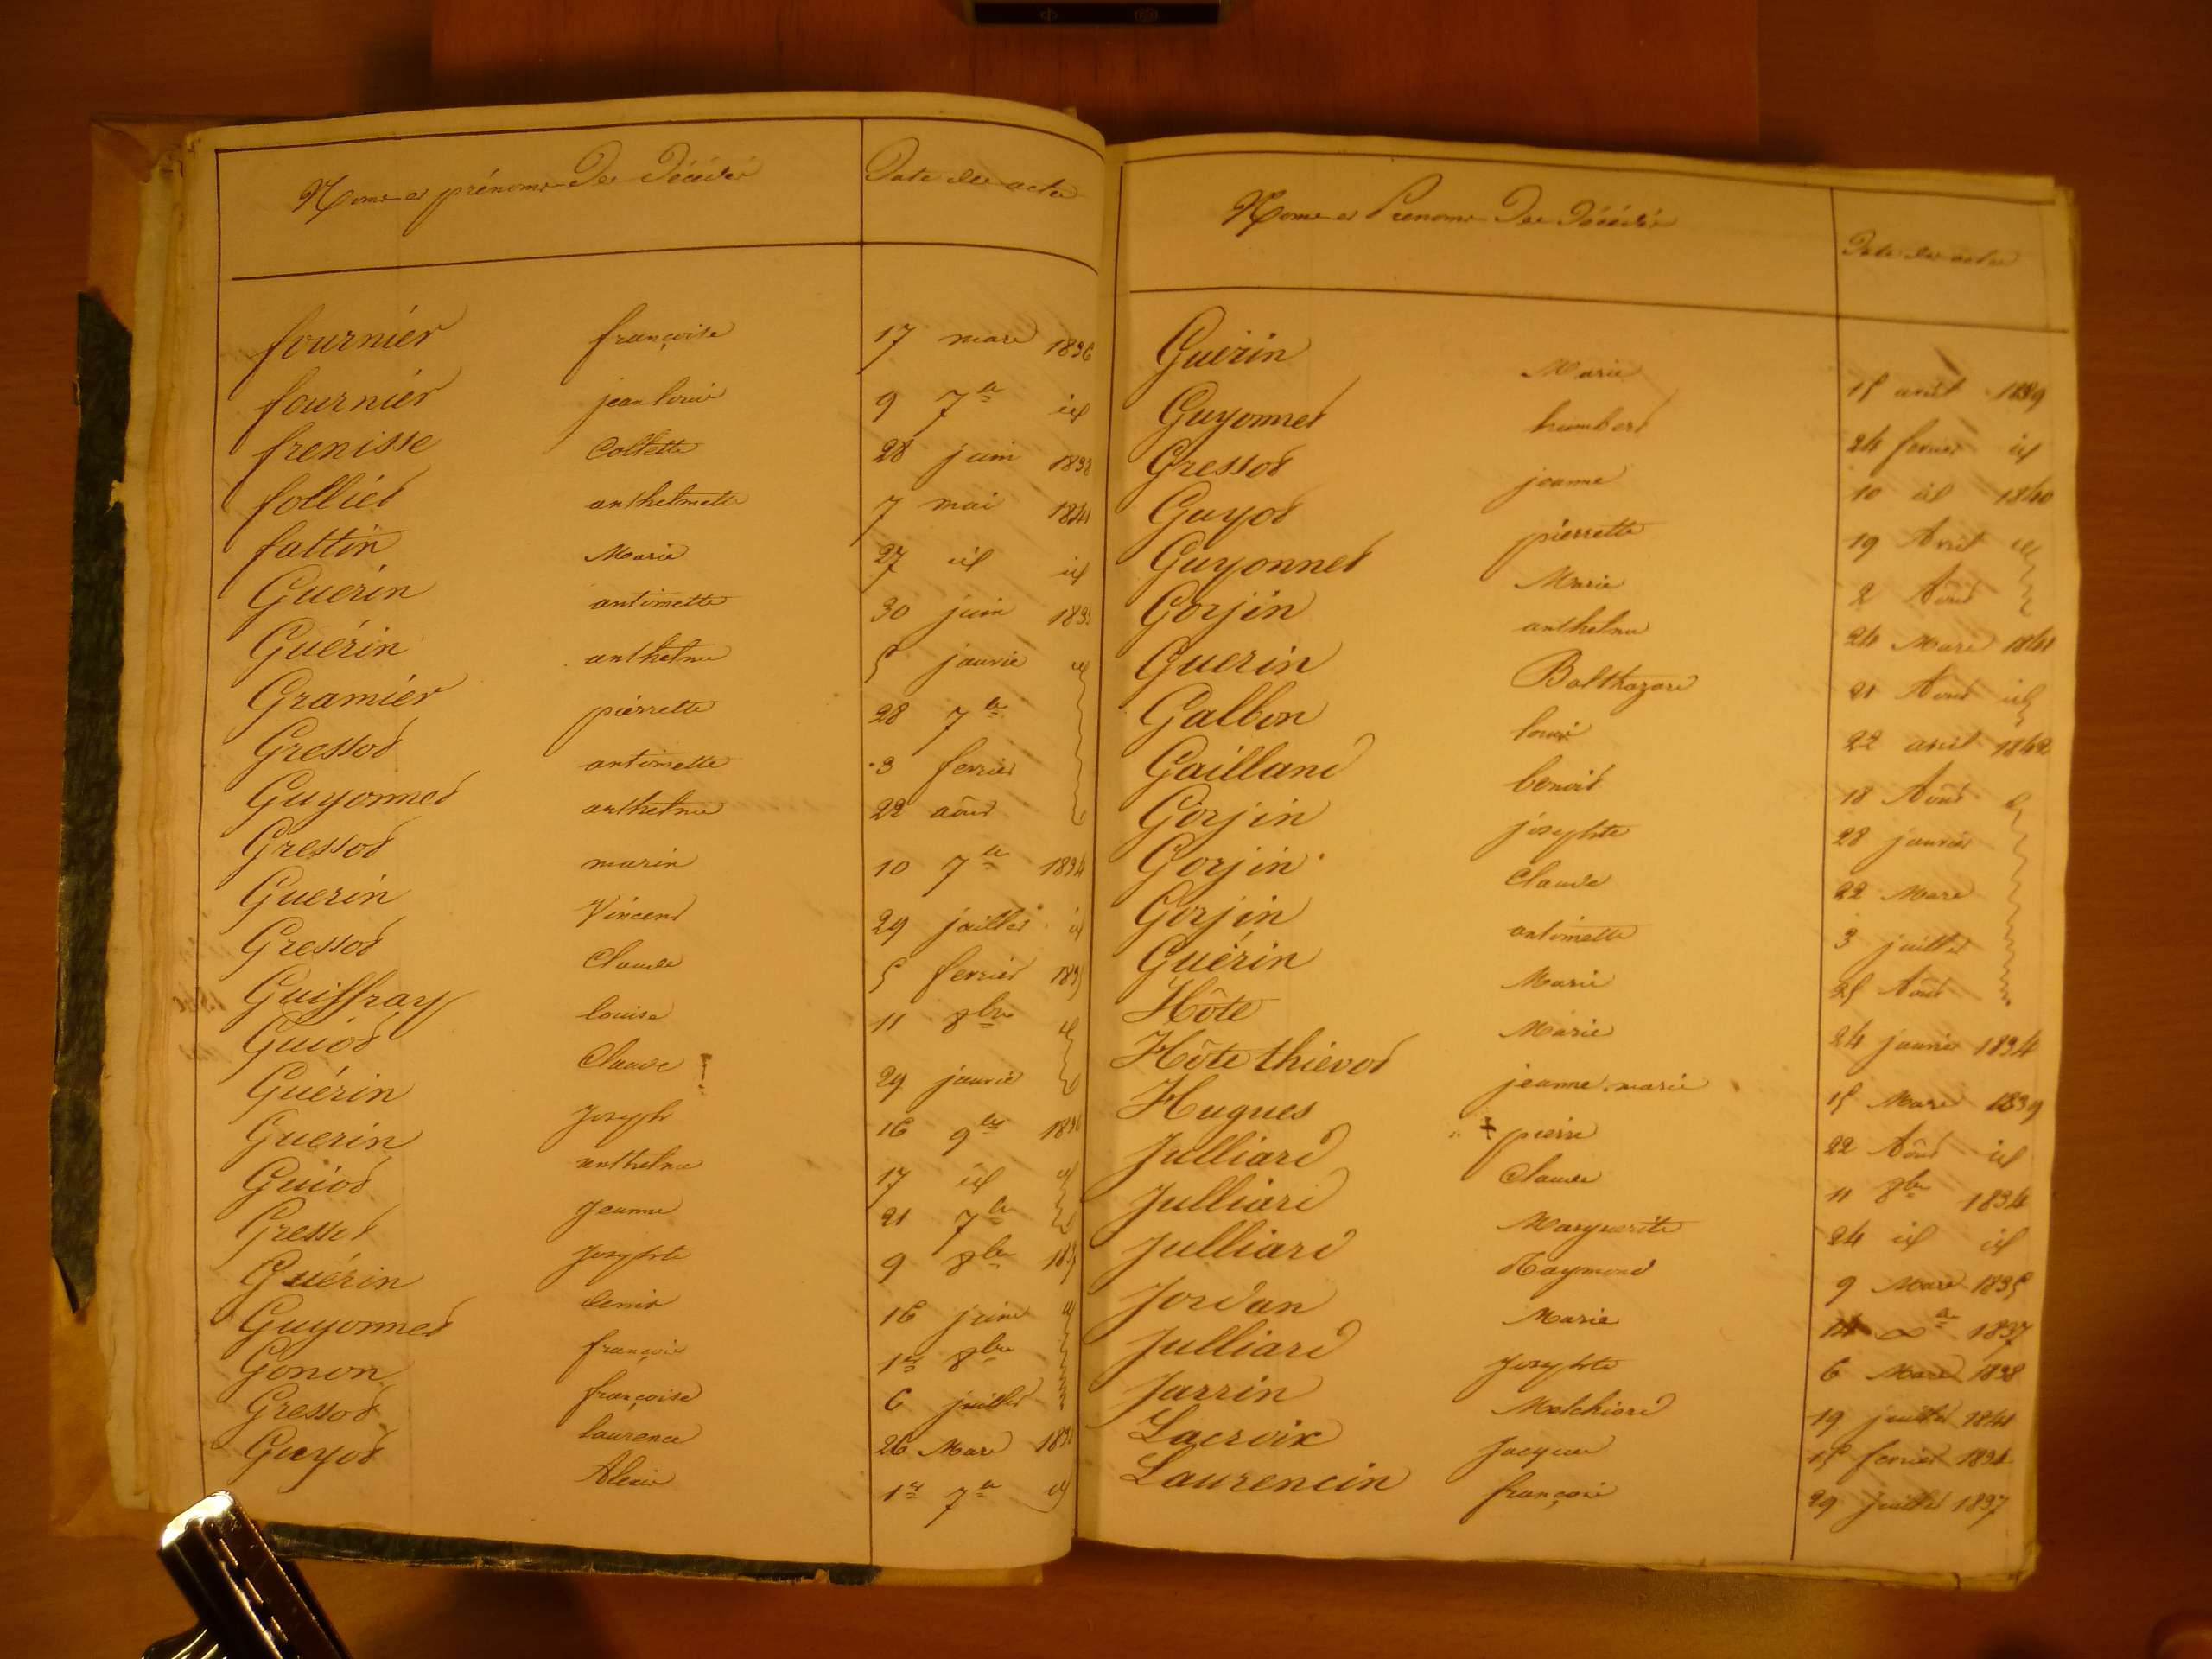 Noms et prénoms Des Décédés Date des actes
fournier françoise 17 mars 1836
fournier jean louis 9 7bre id
frenisse Collette 28 juin 1838
folliet anthelmette 7 mai 1841
fattin Marie 27 id id
Guérin antoinette 30 juin 1833
Guérin anthelme 5 janvie id
Gramier pierrette 28 7bre
Gressot antoinette 3 fevrier
Guyonnet anthelme 22 aôut
Gressot marin 10 7bre 1834
Guerin Vincent 29 juillet id
Gressot Claude 5 fevrier 1835
Guiffray louise 11 8bre id
Guiot Claude 29 janvie
Guérin Joseph 16 9bre 1836
Guerin anthelme 17 id id
Guiot Jeanne 21 7bre
Gressot Josephte 9 8bre 1837
Guérin denis 16 juin id
Guyonnet françois 1er 8bre
Gonon françoise 6 juillet
Gressot laurence 26 Mars 1838
Guyot Alexis 1er 7bre id
Noms et Prenoms Des Décédés Date des actes
Guérin Marie 15 avril 1839
Guyonnet humbert 24 fevrier id
Gressot jeanne 10 id 1840
Guyot pierrette 19 Avril id
Guyonnet Marie 2 Aout
Gorjin anthelme 24 Mars 1841
Guerin Balthazard 21 Aout id
Galbon louis 22 avril 1842
Gaillard benoit 18 Aout
Gorjin josephte 28 janvier
Gorjin Claude 22 Mars
Gorjin antoinette 3 juillet
Guérin Marie 25 Aout
Hôte Marie 24 janvier 1834
Hôte thievot jeanne marie 15 Mars 1839
Hugues + pierre 22 Aôut id
Julliard Claude 11 8bre 1834
Julliard Marguerite 24 id id
Julliard Raymond 9 Mars 1835
Jordan Marie 14 1837
Julliard Josephte 6 Mars 1838
Jarrin Melchiord 19 juillet 1841
Lacroix Jacques 15 fevrier 1834
Laurencin françois 29 juillet 1837